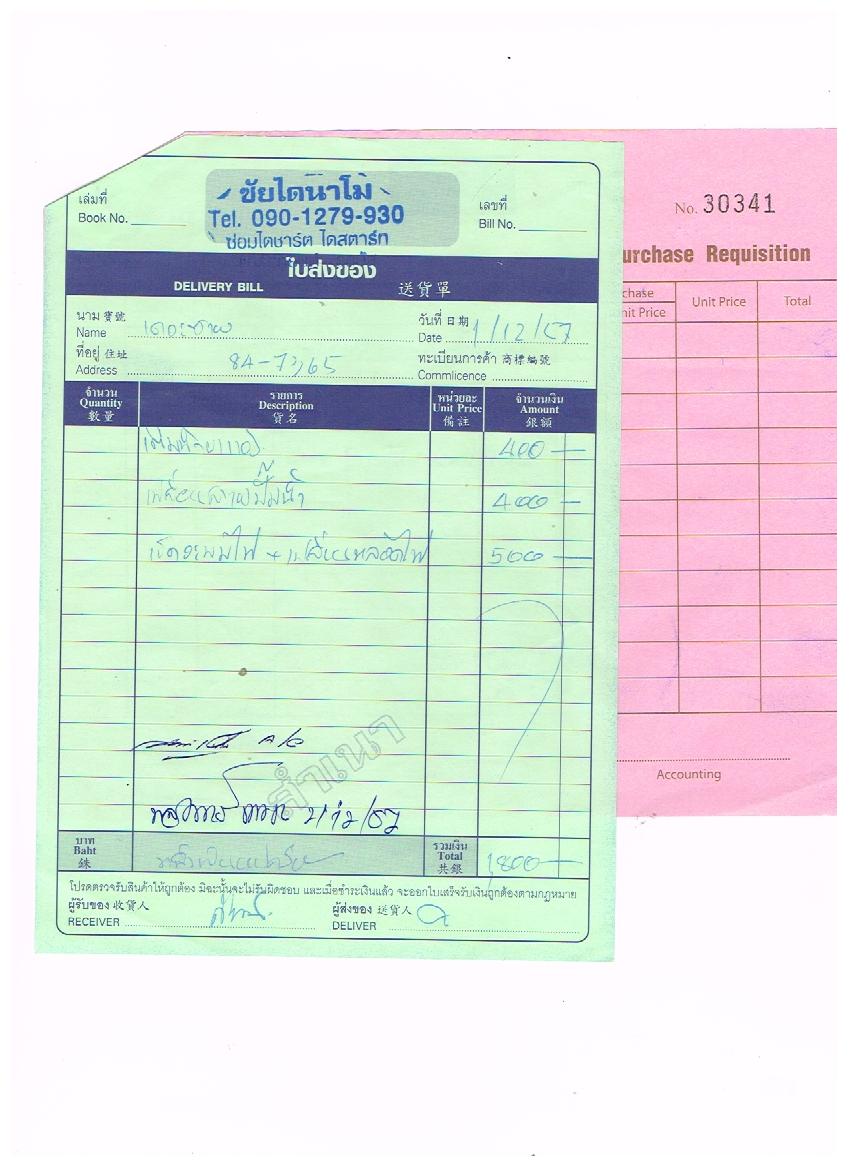 เล่มที่
Book No.
ชัยไดนาโม
Tel. 090-1279-930
ซ่อมไดชาร์ต ไดสตาร์ท
เลขที่
Bill No.
ใบส่งของ
DELIVERY BILL 送貨單
นาม 寶號
Name
วันที่ 日期
Date 1/12/57
ที่อยู่ 住址
Address 84-7365
ทะเบียนการค้า 商標編號
Commlicence
จำนวน
Quantity
數量
รายการ
Description
貨名
หน่วยละ
Unit Price
備註
จำนวนเงิน
Amount
銀額
400 —
เปลี่ยนสายปั๊มน้ำ 400 —
+ เปลี่ยนหลอดไฟ 500 —
สำเนา
2/12/57
บาท
Baht
銖
รวมเงิน
Total
共銀
1800 —
โปรดตรวจรับสินค้าให้ถูกต้อง มิฉะนั้นจะไม่รับผิดชอบ และเมื่อชำระเงินแล้ว จะออกใบเสร็จรับเงินถูกต้องตามกฎหมาย
ผู้รับของ 收貨人
RECEIVER
ผู้ส่งของ 送貨人
DELIVER
No. 30341
urchase Requisition
chase
nit Price
Unit Price
Total
Accounting